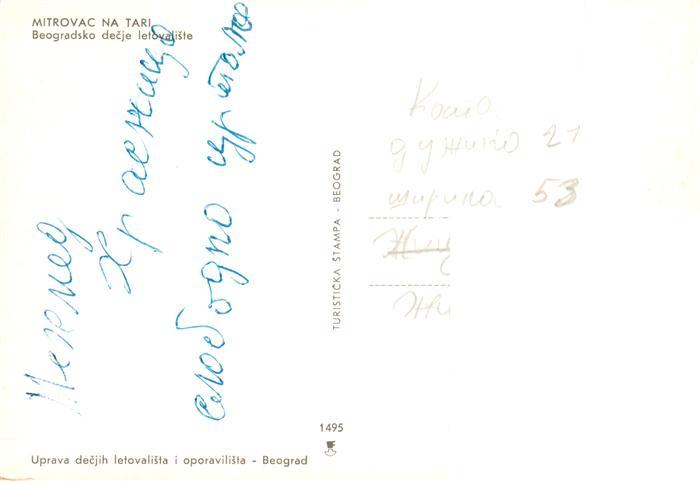 MITROVAC NA TARI
Beogradsko dečje letovalište
Мехмед
Храсница
слободно
TURISTIČKA ŠTAMPA - BEOGRAD
дужина 21
ширина 53
1495
Uprava dečjih letovališta i oporavilišta - Beograd